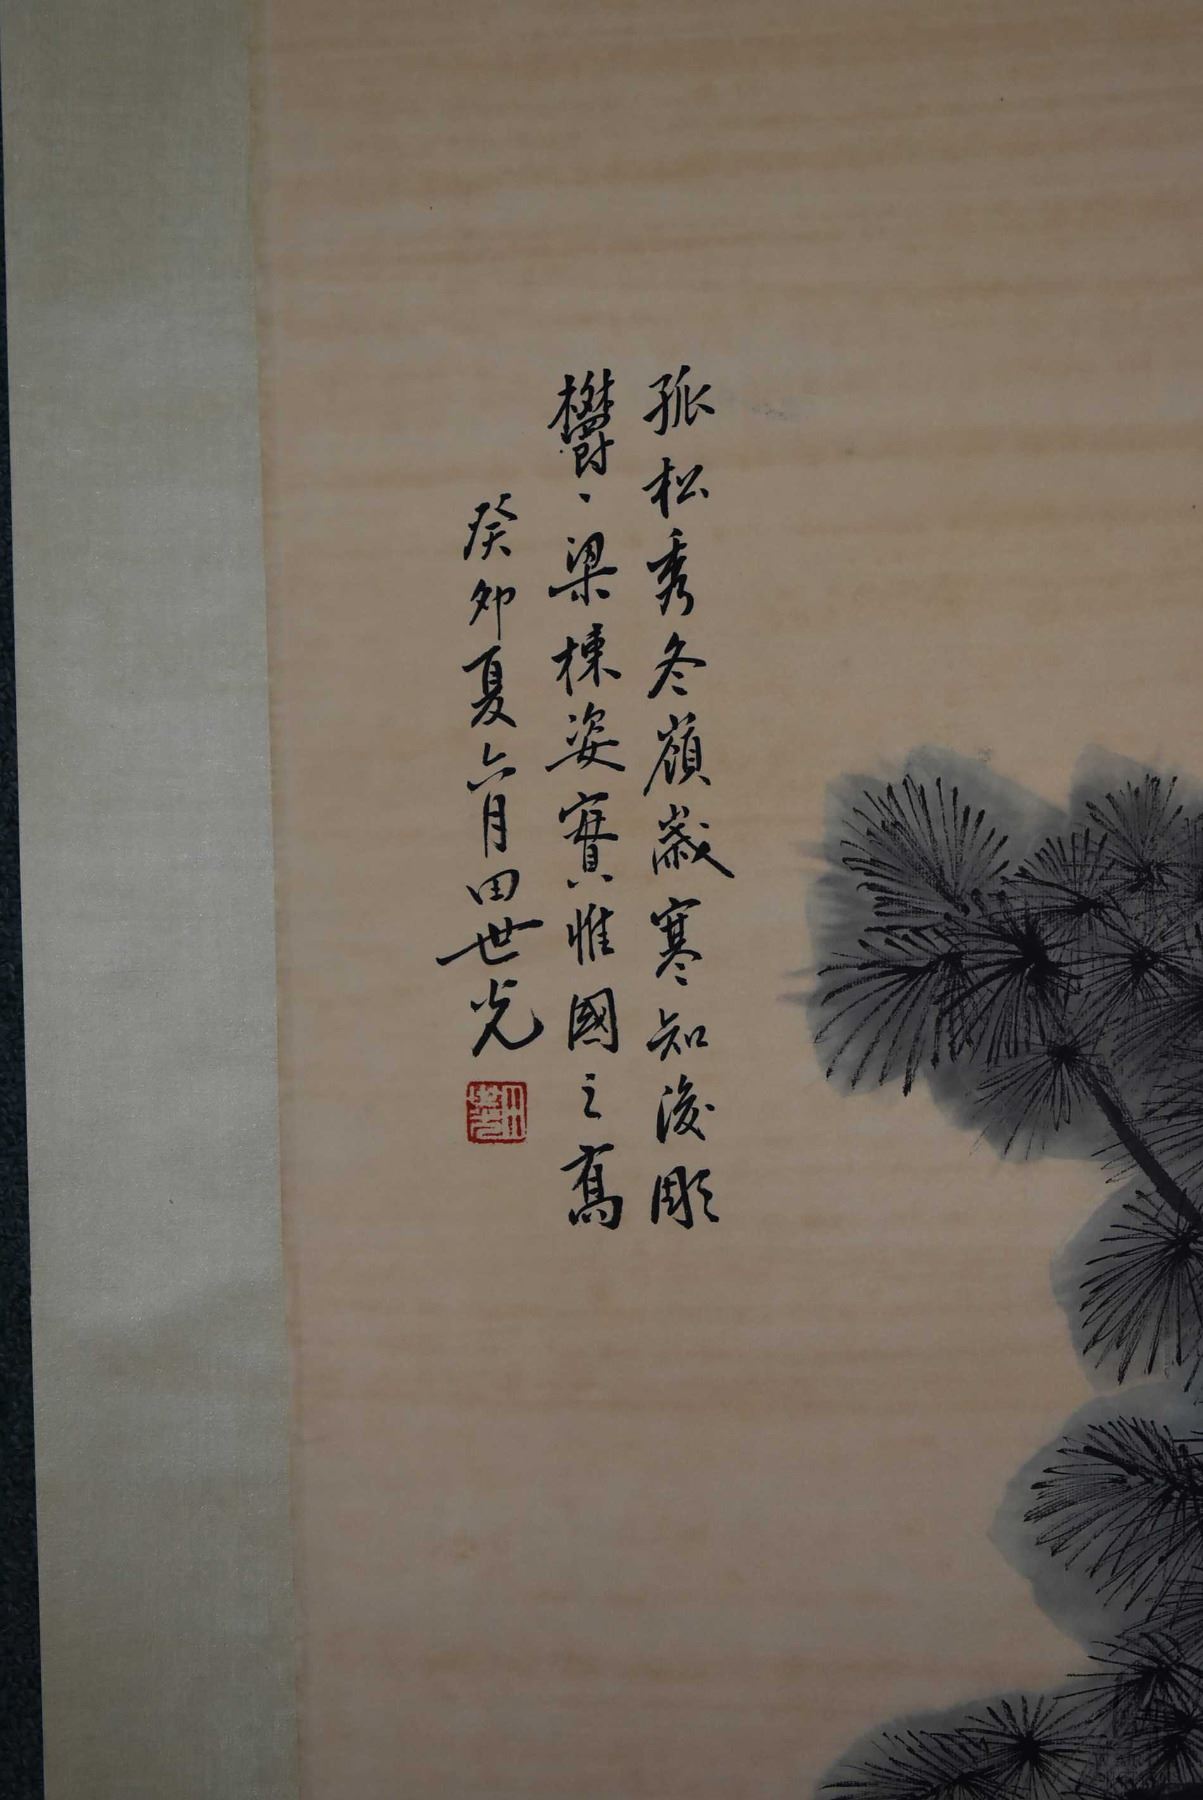 孤松秀冬嶺歲寒知後彫
欝、梁棟姿實惟國之高
癸卯夏六月田世光